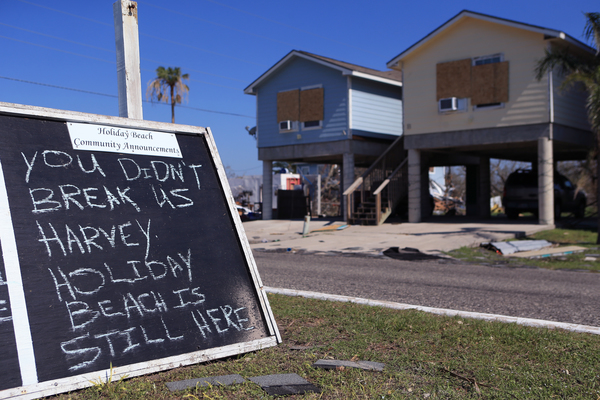 Holiday Beach
Community Announcements
YOU DIDN'T
BREAK US
HARVEY.
HOLIDAY
BEACH IS
STILL HERE